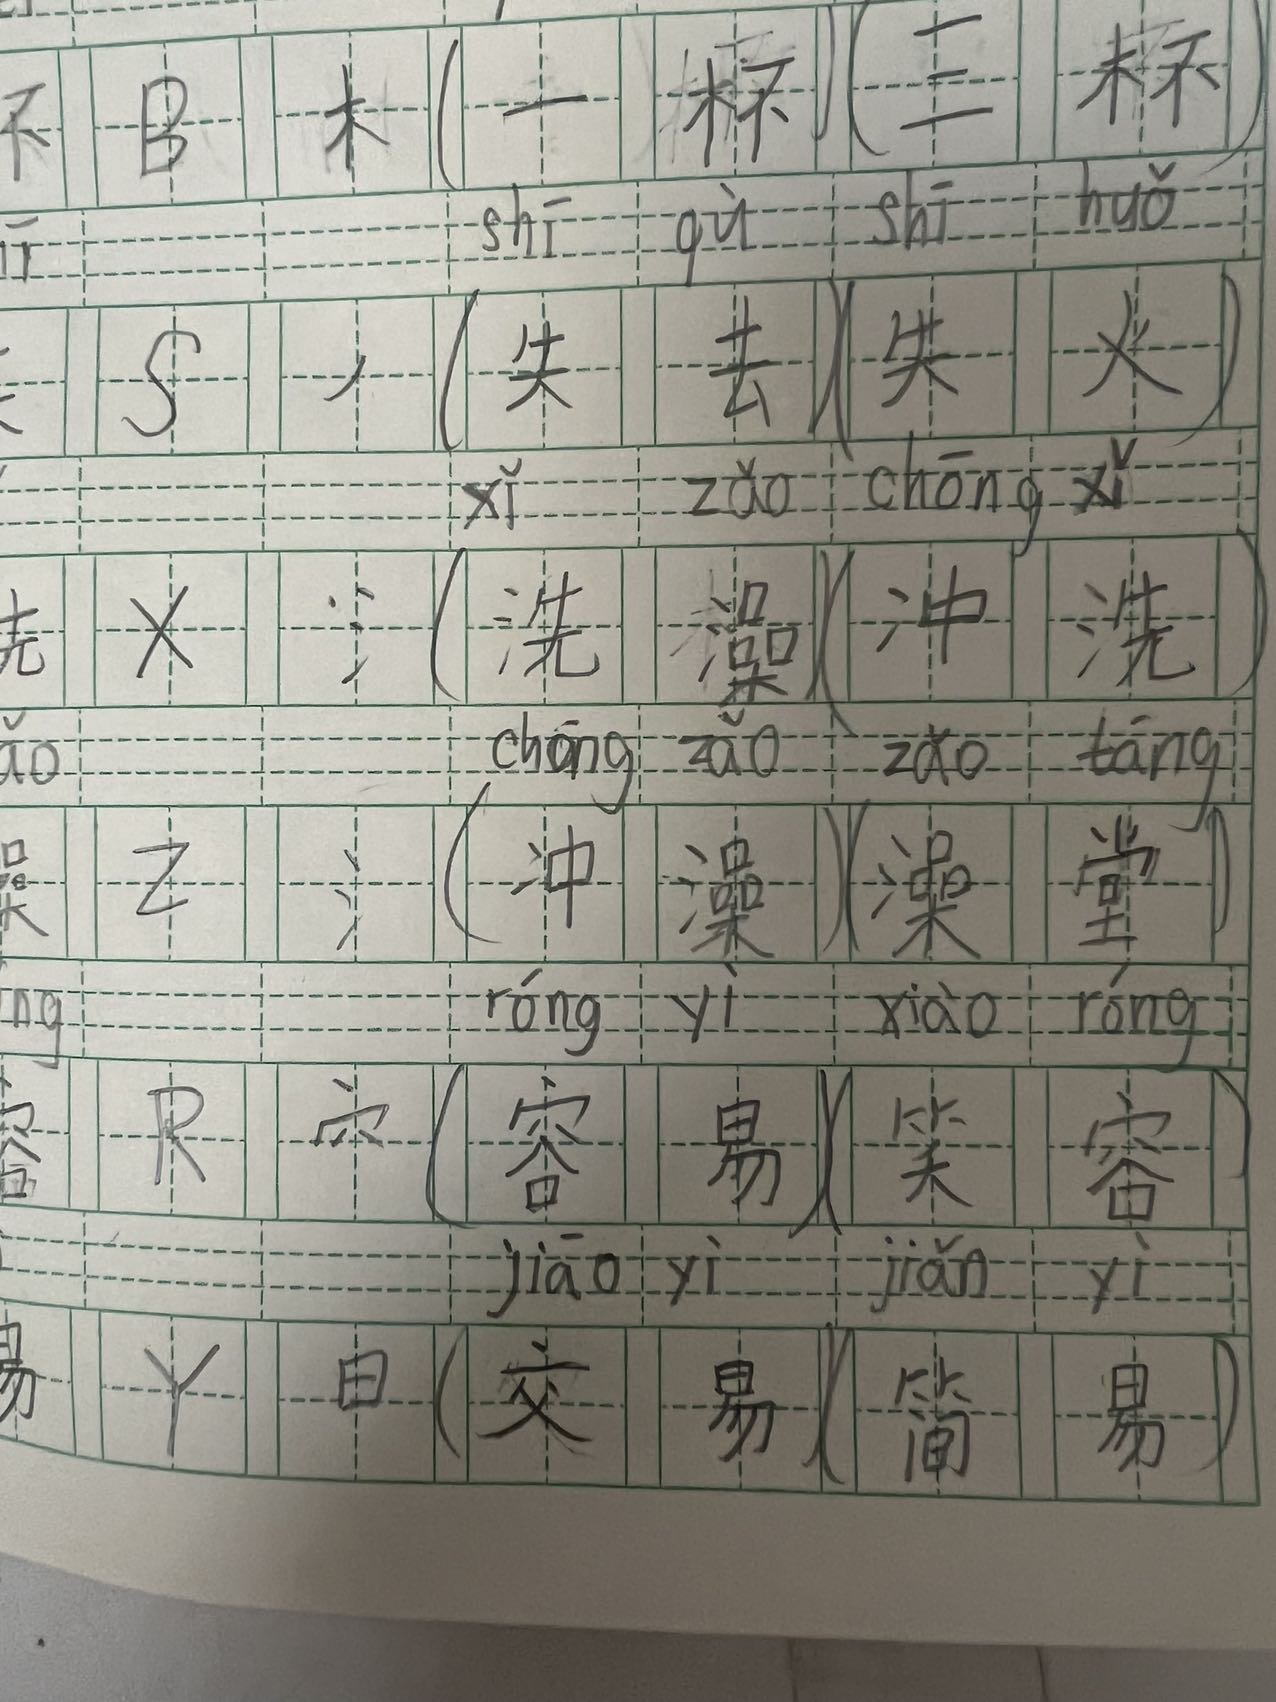 杯 B 木 (一 杯) (三 杯)
shī qù shī huǒ
失 S 丿 (失 去) (失 火)
xǐ zǎo chōng xǐ
洗 X 氵 (洗 澡) (冲 洗)
ǎo chōng zǎo zǎo táng
澡 Z 氵 (冲 澡) (澡 堂)
ng róng yì xiào róng
容 R 宀 (容 易) (笑 容)
jiāo yì jiǎn yì
易 Y 日 (交 易) (简 易)